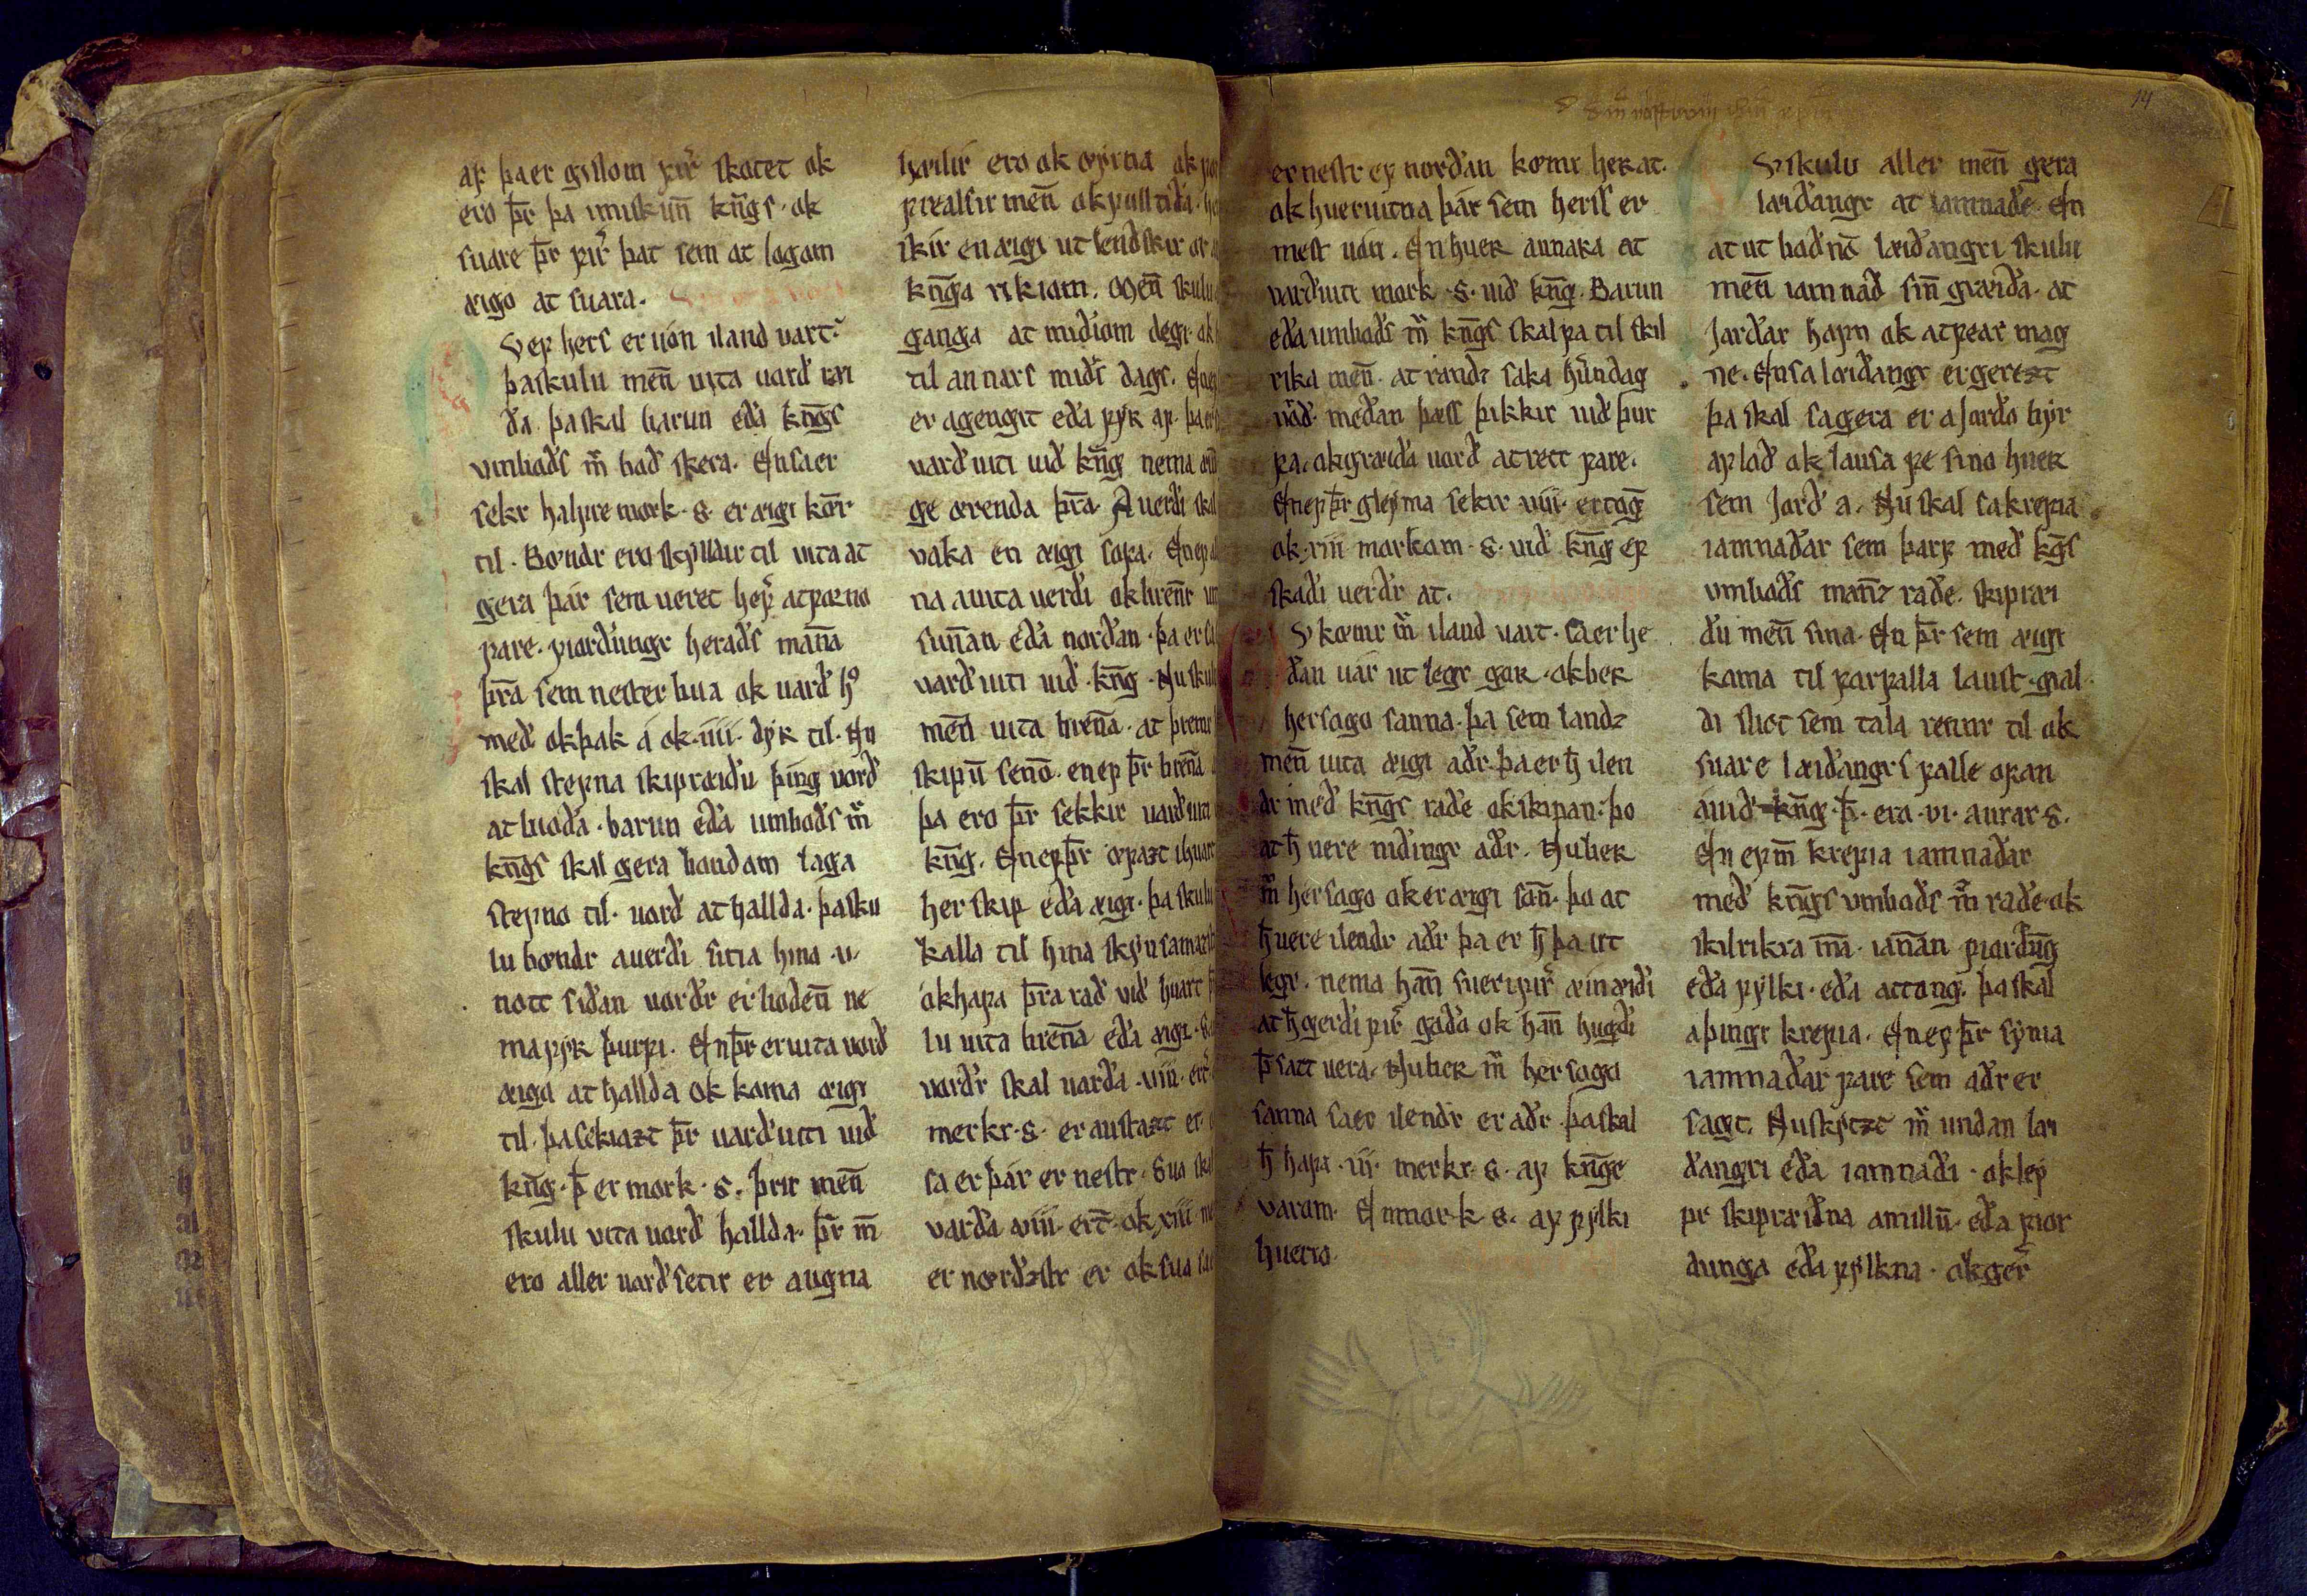 af þa er gislom firir skotet ok
ero þr̄ þa imiskun̄ kn̄gs · ok
suare þr̄ firir þat sem at logom
æigo at suara.
Vef hers er uón iland uart
þa skulu men̄ uita uard ræi
ða. þa skal barun eða kn̄gs
vmbods m̄ boð skera. En sa er
sekr halfre mork · s · er æigi kǿr
til. Bondr ero skylldir til uita at
gera þar sem ueret hef̄ at forno
fare. fiorðungr herads man̄a
þr̄a sem nester bua ok uard h
með ok þak á ok · iiii · dyr til. Nu
skal stefna skipræiðu þing uord
at bioða. barun eða umbods m̄
kn̄gs skal gera bondom laga
stefno til. uord at hallda. þa sku
lu bondr auerði sitia hina · v ·
nott siðan uordr er boden̄ ne
ma fyrr þurfi. En þr̄ er uita uord
æigu at hallda ok koma æigi
til. þa sekiazt þr̄ uarduiti uid
kn̄g. þ er mork · s. þrir men̄
skulu vita uord hallda. þr̄ m̄
ero aller uordsetir er augna
hæilir ero ok œyrna ok
frealsir men̄ ok fulltida.
skir en æigi utlendskir or
kn̄ga rikiom. Men̄ skulu
ganga at miðiom degi ok
til annars miðs dags. En ef
er agengit eða fyrr af. þa er
uarduiti uid kn̄g nema
ge ærenda þr̄a. A uerði skal
vaka en æigi sofa. En ef
na auita uerði ok bren̄r
sun̄an eða nordan. þa er
uarduiti uid kn̄g. Nu skulu
men̄ uita bren̄a. at þremr
skipū senō. en ef þr̄ bren̄a
þa ero þr̄ sekkir uarduiti
kn̄g. En ef þr̄ œfazt ihuart
herskip eða æigi. þa skulu
kalla til hina skynsama
ok hafa þr̄a rað vid huart
lu uita bren̄a eða æigi.
vordr skal uarða · viii · ert
merkr · s · er austazt er
sa er þar er nestr. Sua skal
varða viii · ert · ok xiii
er nordztr er ok sua
er nestr ef nordan kœmr her at.
ok hueruitna þar sem herss er
mest uón. En huer annara at
uarduiti mork · s · uid kn̄g. Barun
eða umbods m̄ kn̄gs skal fa til skil
rika men̄. at randz saka hūndag
uǫrd medan þess þikkir uid þur
fa. ok græiða uord at rett fare.
En ef þr̄ gleyma sekir viii · ertoḡ
ok · xiii morkom · s · uid kn̄g ef
skaði uerdr at.
V kœmr m̄ iland uart. sa er he
ðan uár utlegr gor. ok ber
hersogo sanna. þa sem landz
men̄ uita æigi aðr. þa er h̄ ilen
dr með kn̄gs rade ok skipan. þo
at h̄ uere niðingr aðr. Nu ber
m̄ hersogo ok er æigi san̄. þo at
h̄ uere ilendr aðr þa er h̄ þa ut
legr. nema han̄ sueri fir̄ æinæiði
at h̄ gerði fir̄ goða ok han̄ hugði
þ satt vera. Nu ber m̄ hersogu
sanna sa er ilendr er aðr. þa skal
h̄ hafa · iij · merkr · s · af kn̄ge
varom. En mork · s · af fylki
huerio.
V skulu aller men̄ gera
læiðangr at iamnaðe. En
at ut boðnō læiðangri skulu
men̄ iamnað sin̄ græiða. at
Jarðar hofn ok at fear mag
ne. En sa læiðangr er gerezt
þa skal sa gera er a Jorðo byr
af lað ok lausa fe sino huer
sem Jorð a. Nu skal sa krefia
iamnaðar sem þarf með kḡs
vmbods man̄z raðe. skipræi
ðu men̄ sina. En þr̄ sem æigi
koma til forfalla laust. gial
di slict sem tala rennr til ok
suare læiðangrs falle ofan
á uid kn̄g. þ̄. ero · vi · aurar · s.
En ef m̄ krefia iamnaðar
með kn̄gs vmbods m̄ raðe ok
skilrikra m̄a. ian̄an fiorðūg
eða fylki. eða attong. þa skal
aþingi krefia. En ef þr̄ synia
iamnaðar fare sem aðr er
sagt. Nu skytzt m̄ undan læi
ðangri eða iamnaði. ok ley
pr skipræiðna amillū. eða fior
ðunga eða fylkna. ok ger̄
14